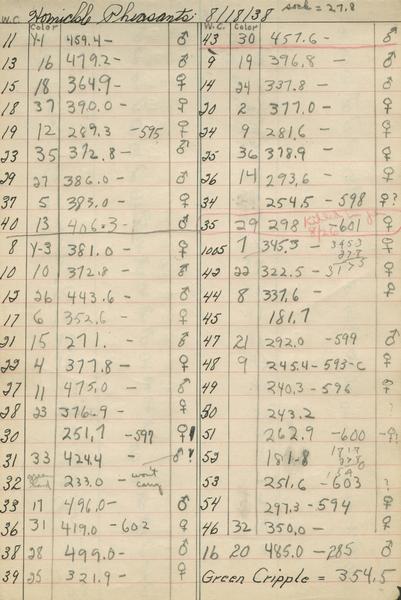 Homicide Pheasants. 8/18/38 sock = 27.8
W.C. Color W.C. Color
11 Y-1 459.4- ♂
13 16 479.2- ♂
15 18 364.9- ♀
18 37 390.0 - ♀
19 12 289.3 -595 ♀
23 35 372.8- ♂
29 27 386.0 - ♂
37 5 383.0 - ♀
40 13 406.3- ♂
8 Y-3 381.0 - ♀
10 10 372.8 - ♂
12 26 443.6 - ♂
17 6 352.6 - ♀
21 15 271. - ♂
22 4 377.8 - ♀
27 11 475.0 - ♂
28 23 376.9 - ♀
30 251.7 -597 ♀
31 33 424.4 - ♂?
32 233.0 - won't carry
33 17 496.0- ♂
36 31 419.0 -602 ♀
38 28 499.0- ♂
39 25 321.9- ♀
43 30 457.6- ♂
9 19 396.8 - ♂
14 24 337.8 - ♂
20 2 377.0 - ♀
24 9 281.6 - ♀
25 36 378.9 - ♀
26 14 293.6 - ♀
34 254.5 -598 ♀?
35 29 298 -601 ♀
Killed
1005 7 345.3 - ♀
42 22 322.5 - ♂
44 8 337.6 - ♀
45 181.7
47 21 292.0 -599 ♂
48 9 245.4-593-C ♀
49 240.3-596 ♀
50 243.2 ?
51 262.9 -600 -♀?
52 181.8
53 251.6 -603 ?
54 297.3-594 ♀
46 32 350.0 - ♀
16 20 485.0 -285 ♂
Green Cripple = 354.5